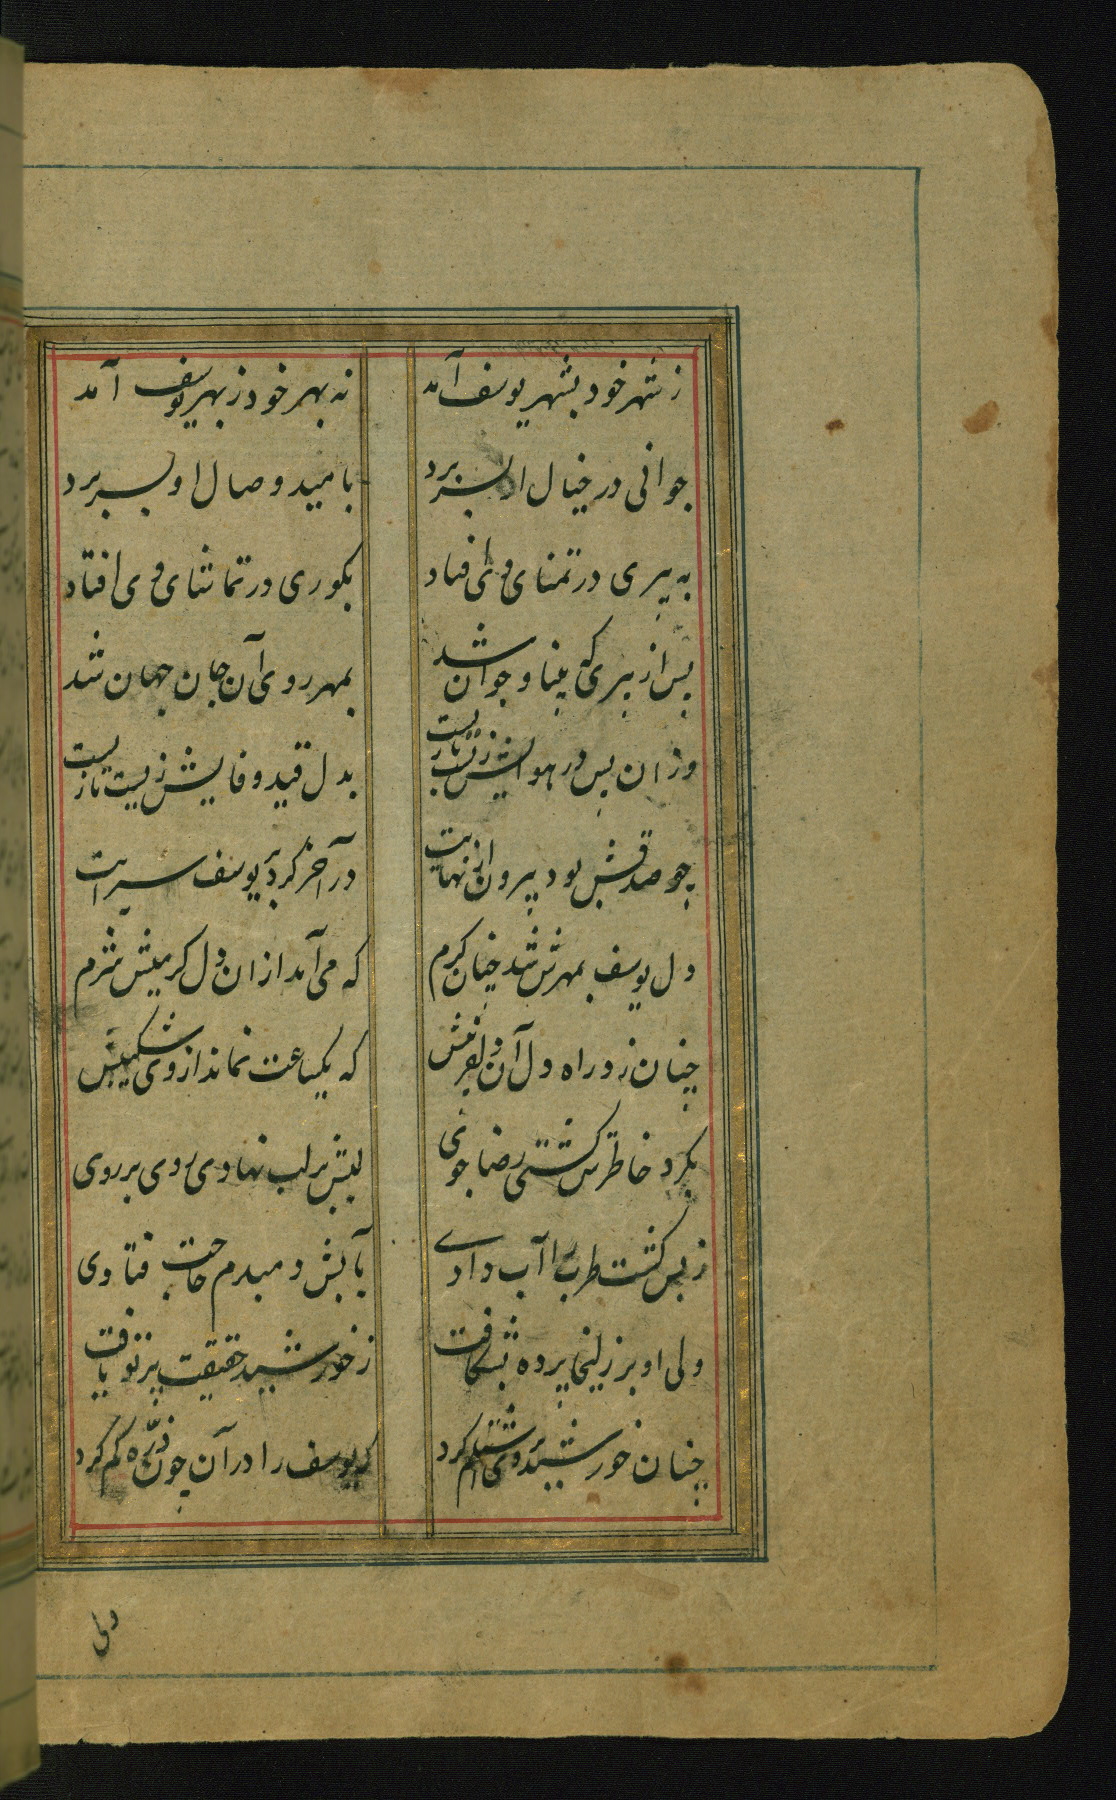 ز شهر خود بشهر یوسف آمد نه بهر خود ز بهر یوسف آمد
جوانی در خیال او بسر برد بامید وصال او بسر برد
به پیری در تمنای وی افتاد بکوری در تماشای وی افتاد
پس از پیری که بینا و جوان شد بمهر روی آن جان جهان شد
وزان پس در هوایش زیست تا زیست بدل قید وفایش زیست تا زیست
چو صدقش بود بیرون از نهایت در آخر کرد بر یوسف سرایت
دل یوسف بمهرش شد چنان گرم که می آمد ازان دل گرمیش شرم
چنان زد راه دل آن دلفریبش که یکساعت نماند از وی شکیبش
بگرد خاطرش گشتی رضا جوی لبش بر لب نهادی روی بر روی
ز بس کشت طرب را آب دادی بآبش دمبدم حاجت فتادی
ولی او بر زلیخا پرده بشکافت ز خورشید حقیقت پرتو یافت
چنان خورشید بر وی اشتلم کرد که یوسف را در آن چون ذره گم کرد
ولی